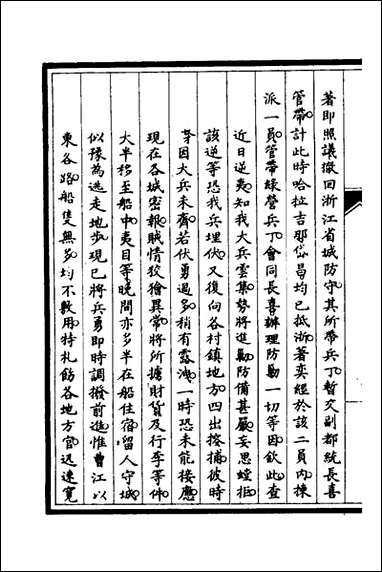 著即照議撤回浙江省城防守其所帶兵丁暫交副都統長喜
管帶計此時哈拉吉那岱昌均已抵浙著奕經於該二員內揀
派一員管帶綠營兵丁會同長喜辦理防勦一切等因欽此查
近日逆夷知我大兵雲集勢將進勦防備甚嚴妄思螳拒
該逆等恐我兵埋伏又復向各村鎮地方四出搜捕彼時
因大兵未齊若伏勇過多稍有露洩一時恐未能接應
現在各城密報賊情狡獪異常將所擄財貨及行李等件
大半移至船中夷目等晚間亦多半在船住宿留人守城
似豫為逃走地步現已將兵勇即時調撥前進惟曹江以
東各路船隻無多均不敷用特札飭各地方官迅速寬